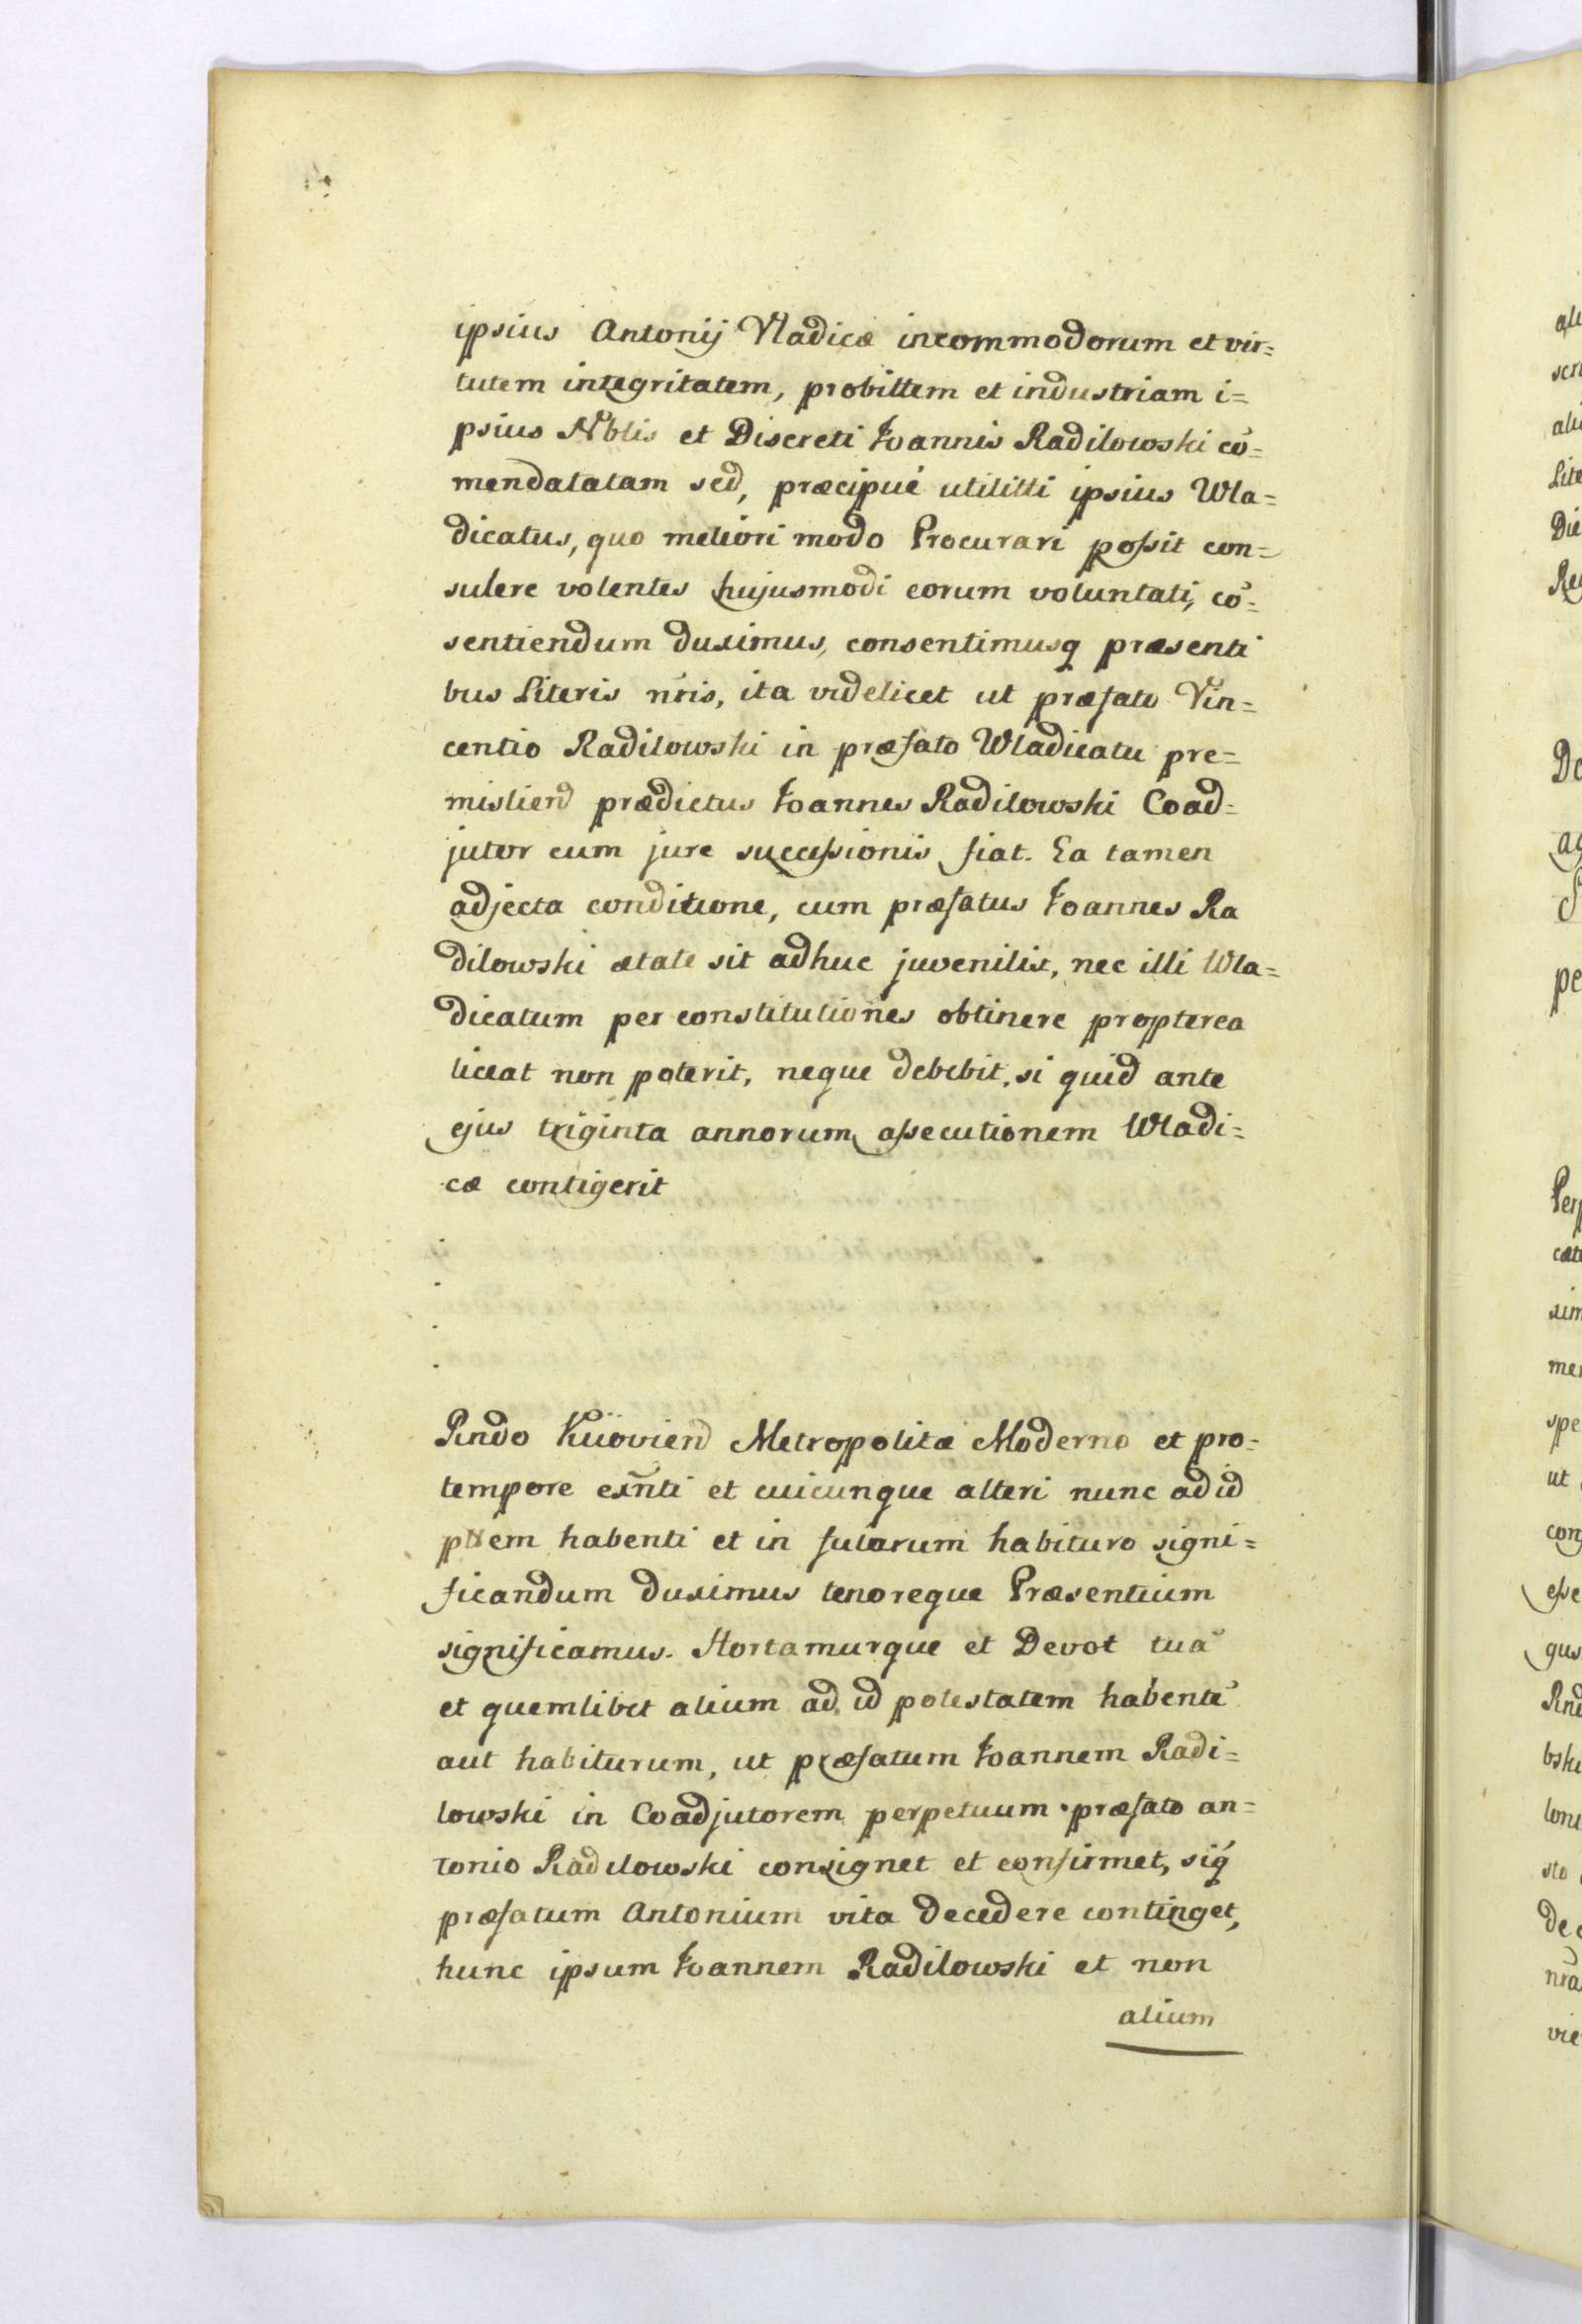 ipsius Antonij Vladicæ incommodorum et vir=
tutem integritatem, probittem et industriam i=
psius Nblis et Discreti Joannis Radilowski cō=
mendatatam sed, præcipué utilitti ipsius Wla=
dicatus, quo meliori modo Procurari possit con=
sulere volentes hujusmodi eorum voluntati, cō=
sentiendum duximus, consentimusq præsenti
bus Literis nris, ita videlicet ut præfato Vin=
centio Radilowski in præfato Wladicatu pre=
mislien prædictus Joannes Radilowski Coad=
jutor cum jure successionis fiat. Ea tamen
adjecta conditione, cum præfatus Joannes Ra
dilowski ætate sit adhuc juvenilis, nec illi Wla=
dicatum per constitutiones obtinere propterea
liceat non poterit, neque debebit, si quid ante
ejus triginta annorum assecutionem Wladi=
cæ contigerit
.
.
.
.
Rndo Kiiovien Metropolitæ Moderno et pro=
tempore exn̄ti et cuicunque alteri nunc ad id
pttem habenti et in futurum habituro signi=
ficandum duximus tenoreque Præsentium
significamus. Hortamurque et Devot tuā
et quemlibet alium ad id potestatem habentē
aut habiturum, ut præfatum Joannem Radi=
lowski in Coadjutorem perpetuum præfato an=
tonio Radilowski consignet et confirmet, siq́
præfatum Antonium vita decedere continget,
hunc ipsum Joannem Radilowski et non
alium